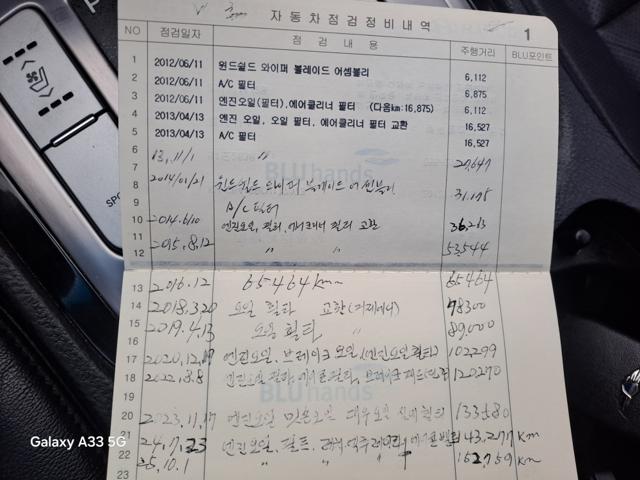 자동차점검정비내역
1
NO 점검일자 점 검 내 용 주행거리 BLU포인트
1 2012/06/11 윈드쉴드 와이퍼 블레이드 어셈블리 6,112
2 2012/06/11 A/C 필터 6,875
3 2012/06/11 엔진오일(필터),에어클리너 필터 (다음km:16,875) 6,112
4 2013/04/13 엔진 오일, 오일 필터, 에어클리너 필터 교환 16,527
5 2013/04/13 A/C 필터 16,527
6 13.11/1 〃 27,647
7
8 2014/01/21 윈드쉴드 와이퍼 블레이드 어셈블리 31,175
9 A/C 필터
10 2014.6/10 엔진오일, 필터, 에어크리너 필터 교환 36,263
11 2015.8.12 〃 〃 53,544
12
BLUhands
13 2016.12 65464km 65464
14 2018.3.20 오일 필타 교환 78300
15 2019.4.13 오일 필타 89,000
16
17 2020.12.19 엔진오일, 브레이크 오일, (엔진오일 휠타) 102,299
18 2022.8.8 엔진오일 필타, 브레이크 120270
19
BLUhands
20 2023.11.17 엔진오일 133580
21 24,7,23 엔진오일, 필트, 143,277 km
22 25.10.1 〃 〃 〃 162,759 km
23
SPO
Galaxy A33 5G